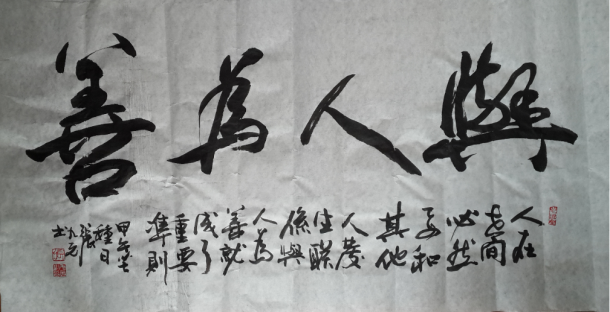 與人為善
人在
世間
必然
要和
其他
人發
生聯
係與
人為
善就
成了
重要
準則
甲午芒
種日
張元